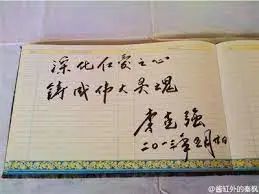 深化仁爱之心
铸成伟大灵魂
李克强
二〇一三年 月 日
@酱缸外的秦枫